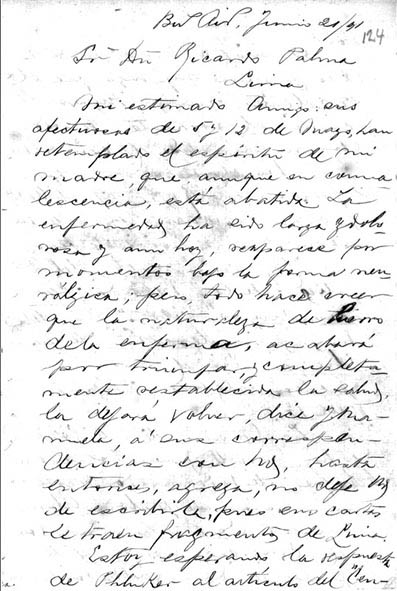 Bs Aires, Junio 21/91
124
Sr Dn Ricardo Palma
Lima
Mi estimado Amigo: sus
afectuosas de 5 y 12 de Mayo, han
retemplado el espíritu de mi
madre, que aunque en conva
lescencia, está abatida. La
enfermedad ha sido larga y dolo
rosa y aun hoy, reaparece por
momentos bajo la forma neu
rálgica; pero, todo hace creer
que la naturaleza de hierro
de la enferma, acabará
por triunfar, y completa-
mente restablecida la salud,
la dejará volver, dice
á sus correspon-
dencias con Vd, hasta
entonces, agrega, no deje Vd
de escribirle, pues sus cartas
le traen fragmentos de Lima.
Estoy esperando la respuesta
de al artículo del Cen-